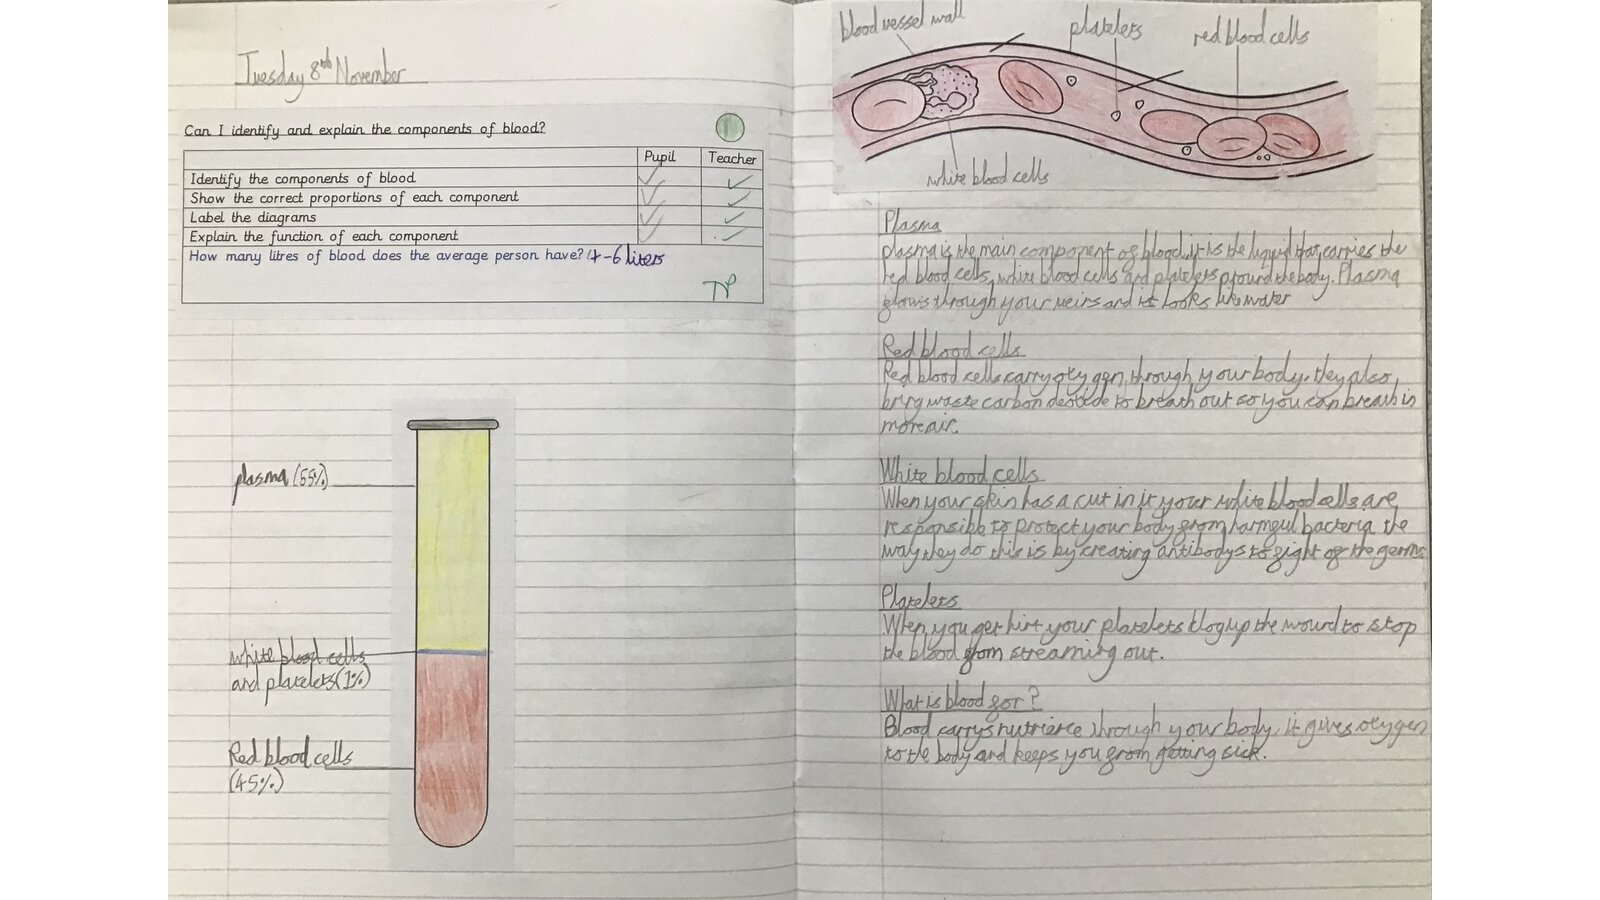 Tuesday 8th November
Can I identify and explain the components of blood?
Pupil Teacher
Identify the components of blood
Show the correct proportions of each component
Label the diagrams
Explain the function of each component
How many litres of blood does the average person have? 4-6 liters
TP
plasma (55%)
white blood cells
and platelets (1%)
Red blood cells
(45%)
blood vessel wall
platelets
red blood cells
white blood cells
Plasma
plasma is the main component of blood, it is the liquid that carries the
red blood cells, white blood cells and platelets around the body. Plasma
flows through your veins and it looks like water
Red blood cells
Red blood cells carry oxygen through your body. they also
bring waste carbon deoxide to breath out so you can breath in
more air.
White blood cells
When your skin has a cut in it your white blood cells are
responsible to protect your body from harmful bacteria the
way they do this is by creating antibodys to fight of the germs
Platelets
When you get hurt your platelets clog up the wound to stop
the blood from streaming out.
What is blood for?
Blood carrys nutrience through your body. it gives oxygen
to the body and keeps you from getting sick.